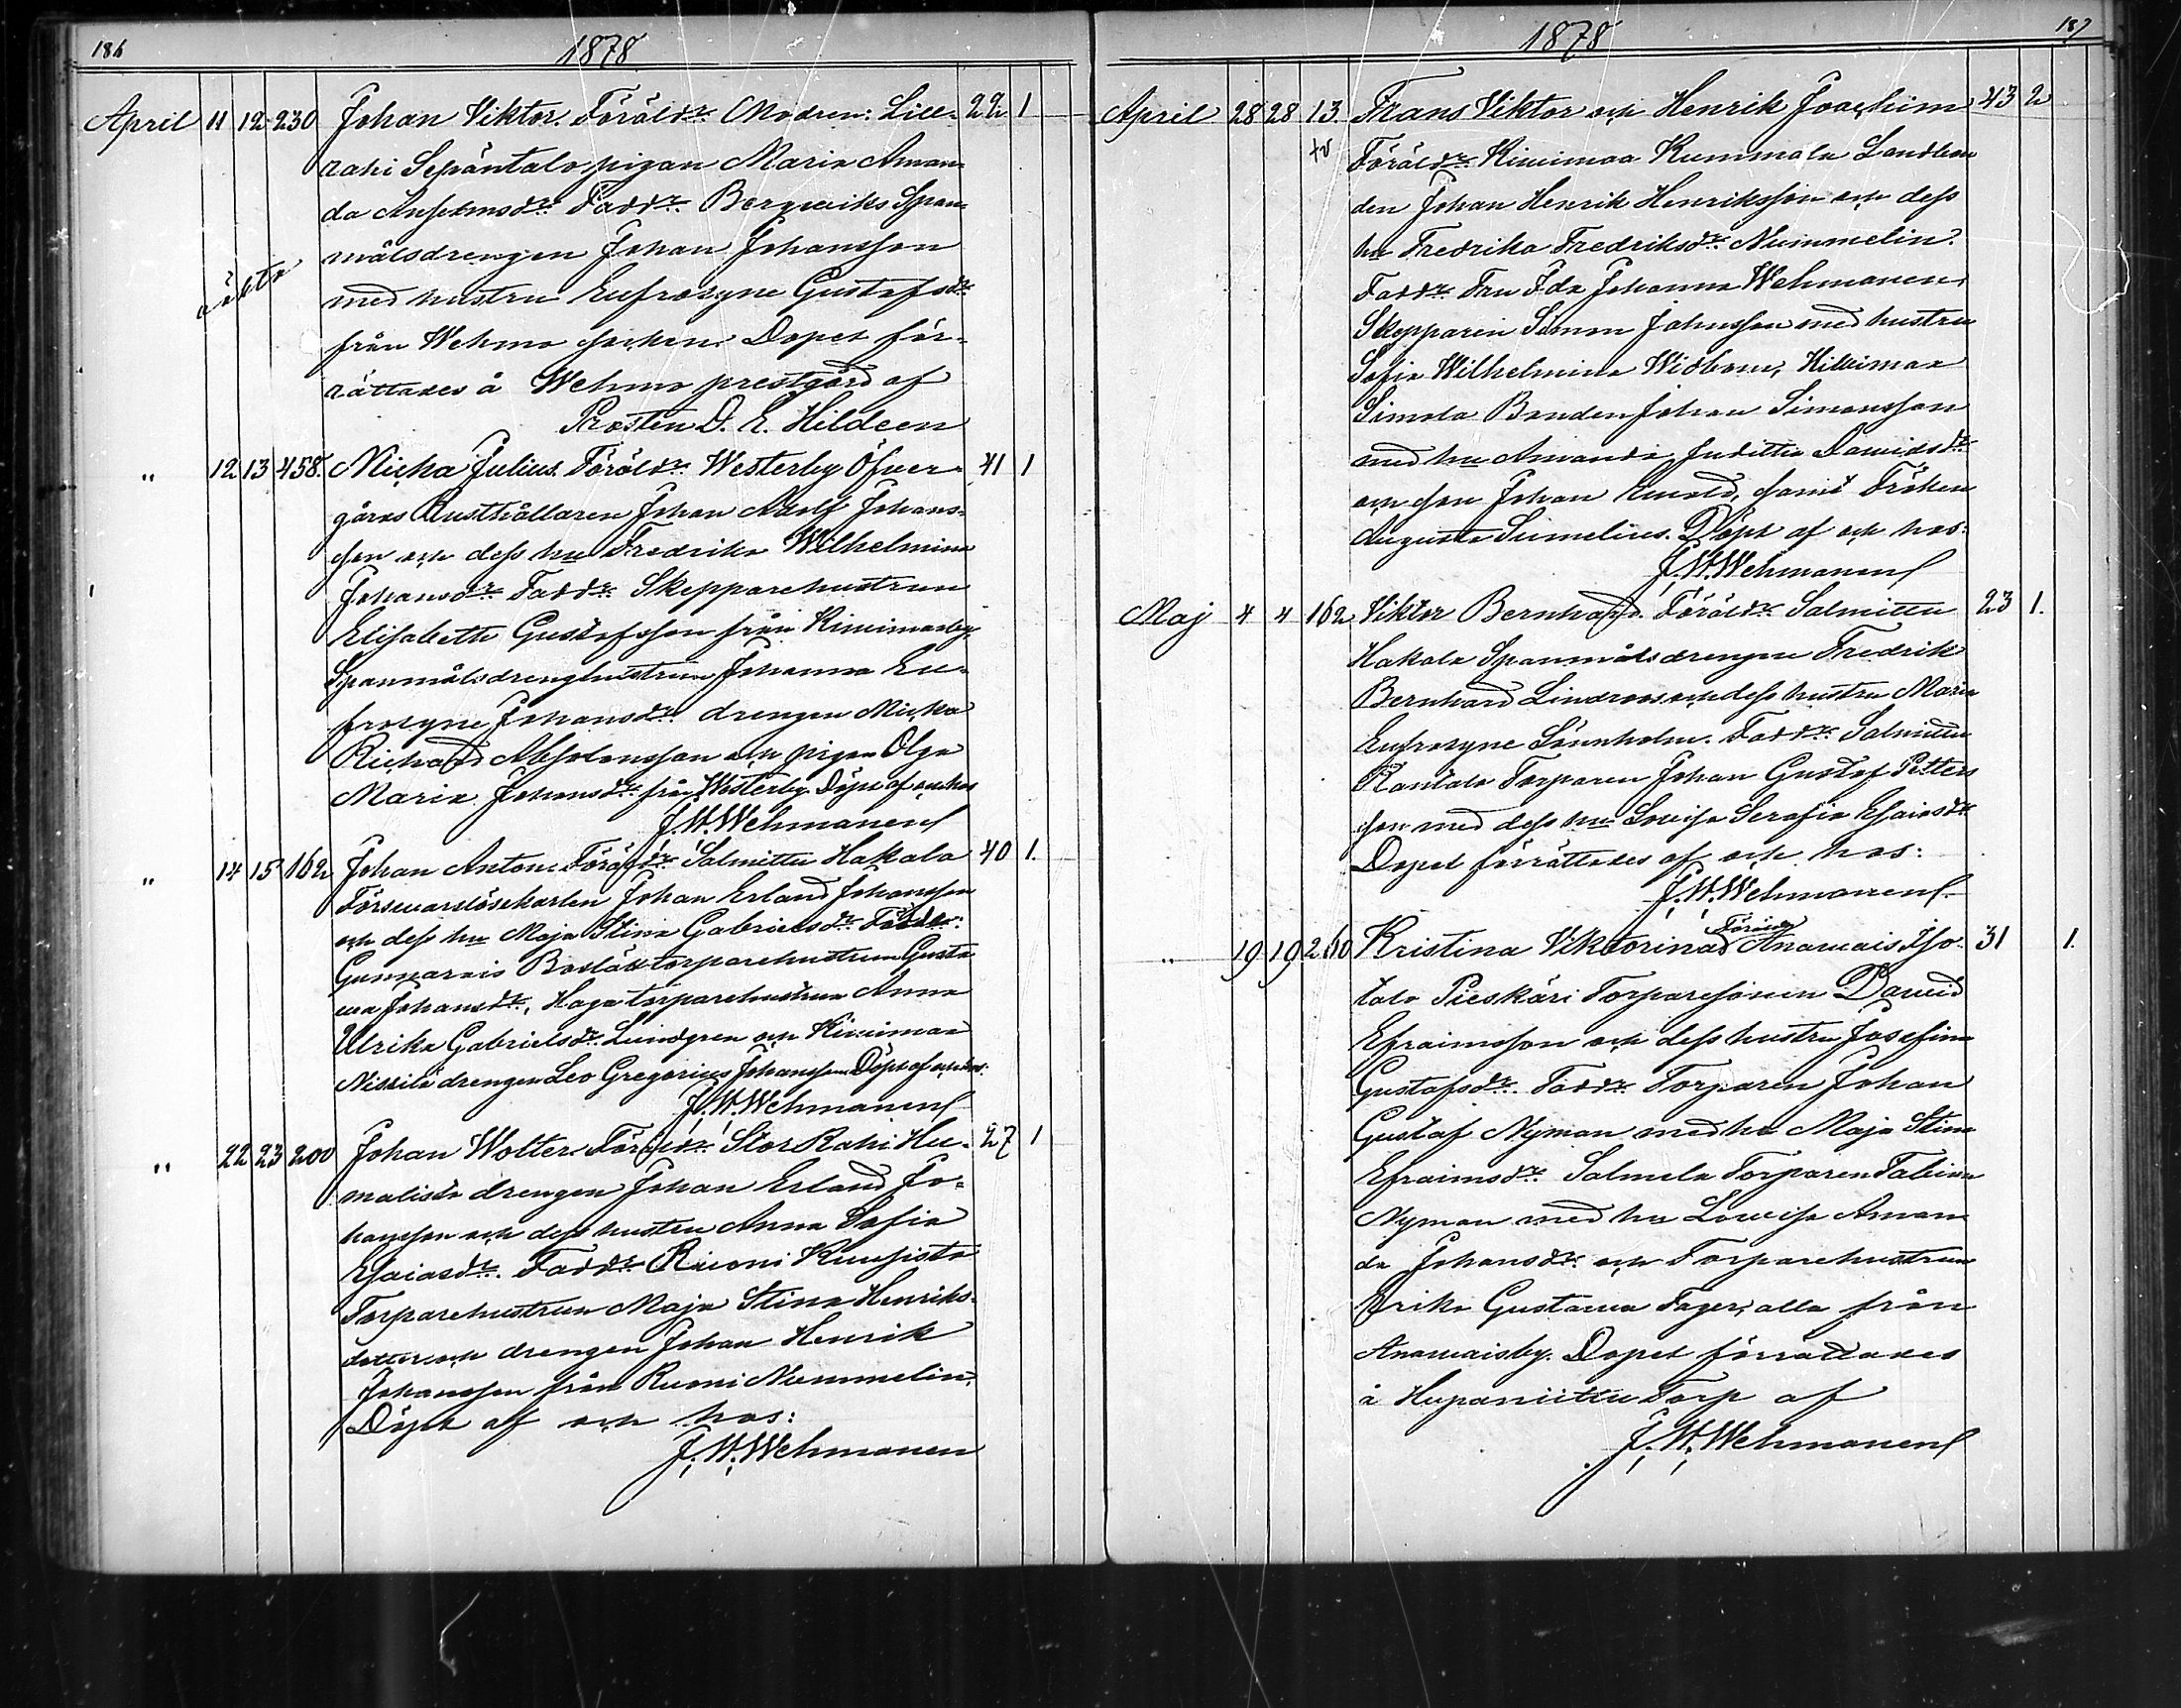 186
1878
April 11 12 230 Johan Viktor. Föräldr Modren: Lill- 29 1
rahi Seppäntalo pigan Maria Aman-
da Anselmsdr. Faddr. Bergwiks Span-
målsdrengen Johan Johansson
oäkta
med hustru Eufrosyne Gustafsdr
från Wehmo socken. Dopet för-
rättades å Wehmo prestgård af
Prosten D. E. Hildeen
" 12 13 458. Micka Julius. Föräldr. Westerby Öfver- 41 1
gårds Rusthållaren Johan Adolf Johans-
son och dess hu Fredrika Wilhelmina
Johansdr. Faddr. Skepparehustrun
Elisabeth Gustafsson från Kiwimaaby,
Spanmålsdrenghustrun Johanna Eu-
frosyne Johansdr drengen Micka
Richard Absolonsson och pigan Olga
Maria Johansdr från Westerby. Döpt af och hos
J. W. Wehmanen
" 14 15 162 Johan Anton. Föräldr. Salmittu Hakala 40 1.
Förswarslösekarlen Johan Erland Johansson
och dess hu Maja Stina Gabrielsdr. Faddr:
Gunnarais torparehustrun Gusta
va Johansdr, Haga torparehustrun Anna
Ulrika Gabrielsdr. Lundgren och Kiwimaa
Nissilä drengen Leo Gregorius Johansson. Döpt af och hos:
J. W. Wehmanen
" 22 23 200 Johan Wolter. Föräldr. Stor Rahi Hu- 27 1
malisto drengen Johan Erland Jo-
hansson och dess hustru Anna Sofia
Esaiasdr. Faddr. Ruoni Kuusisto
Torparehustrun Maja Stina Henriks-
dotter och drengen Johan Henrik
Johansson från Ruoni Nummelin.
Döpt af och hos:
J. W. Wehmanen
187
1878
April 28 28 13 Frans Viktor och Henrik Joachim 43 2
Föräldr. Kiwimaa Kummala Landbon
den Johan Henrik Henriksson och dess
hu Fredrika Fredriksdr. Nummelin.
Faddr. Fru Ida Johanna Wehmanen,
Skepparen Simon Johnsson med hustru
Sofia Wilhelmina Widbom, Kiwimaa
Simola Bonden Johan Simonsson
med hu Amanda Juditha Dawidsdr
och son Johan Ewald, samt Fröken
Augusta Sumelius. Döpt af och hos:
J. W. Wehmanen
Maj 4 4 162 Viktor Bernhard. Föräldr. Salmittu 23 1.
Hakala Spanmålsdrengen Fredrik
Bernhard Lindroos och dess hustru Maria
Eufrosyne Lönnholm. Faddr. Salmittu
Rantala Torparen Johan Gustaf Petters
son med dess hu Lovisa Serafia Esaiasdr
Dopet förrättades af och hos:
J. W. Wehmanen
" 19 19 260 Kristina Viktorina. Föräldr Anawais Iso- 31 1.
talo Pieskäri Torparesonen Dawid
Efraimsson och dess hustru Josefina
Gustafsdr. Faddr. Torparen Johan
Gustaf Nyman med hu Maja Stina
Efraimsdr. Salmela Torparen Fabian
Nyman med hu Lowisa Aman-
da Johansdr. och Torparehustrun
Ulrika Gustawa Fager, alla från
Anawaisby. Dopet förrättades
å Hupaniittu Torp af
J. W. Wehmanen